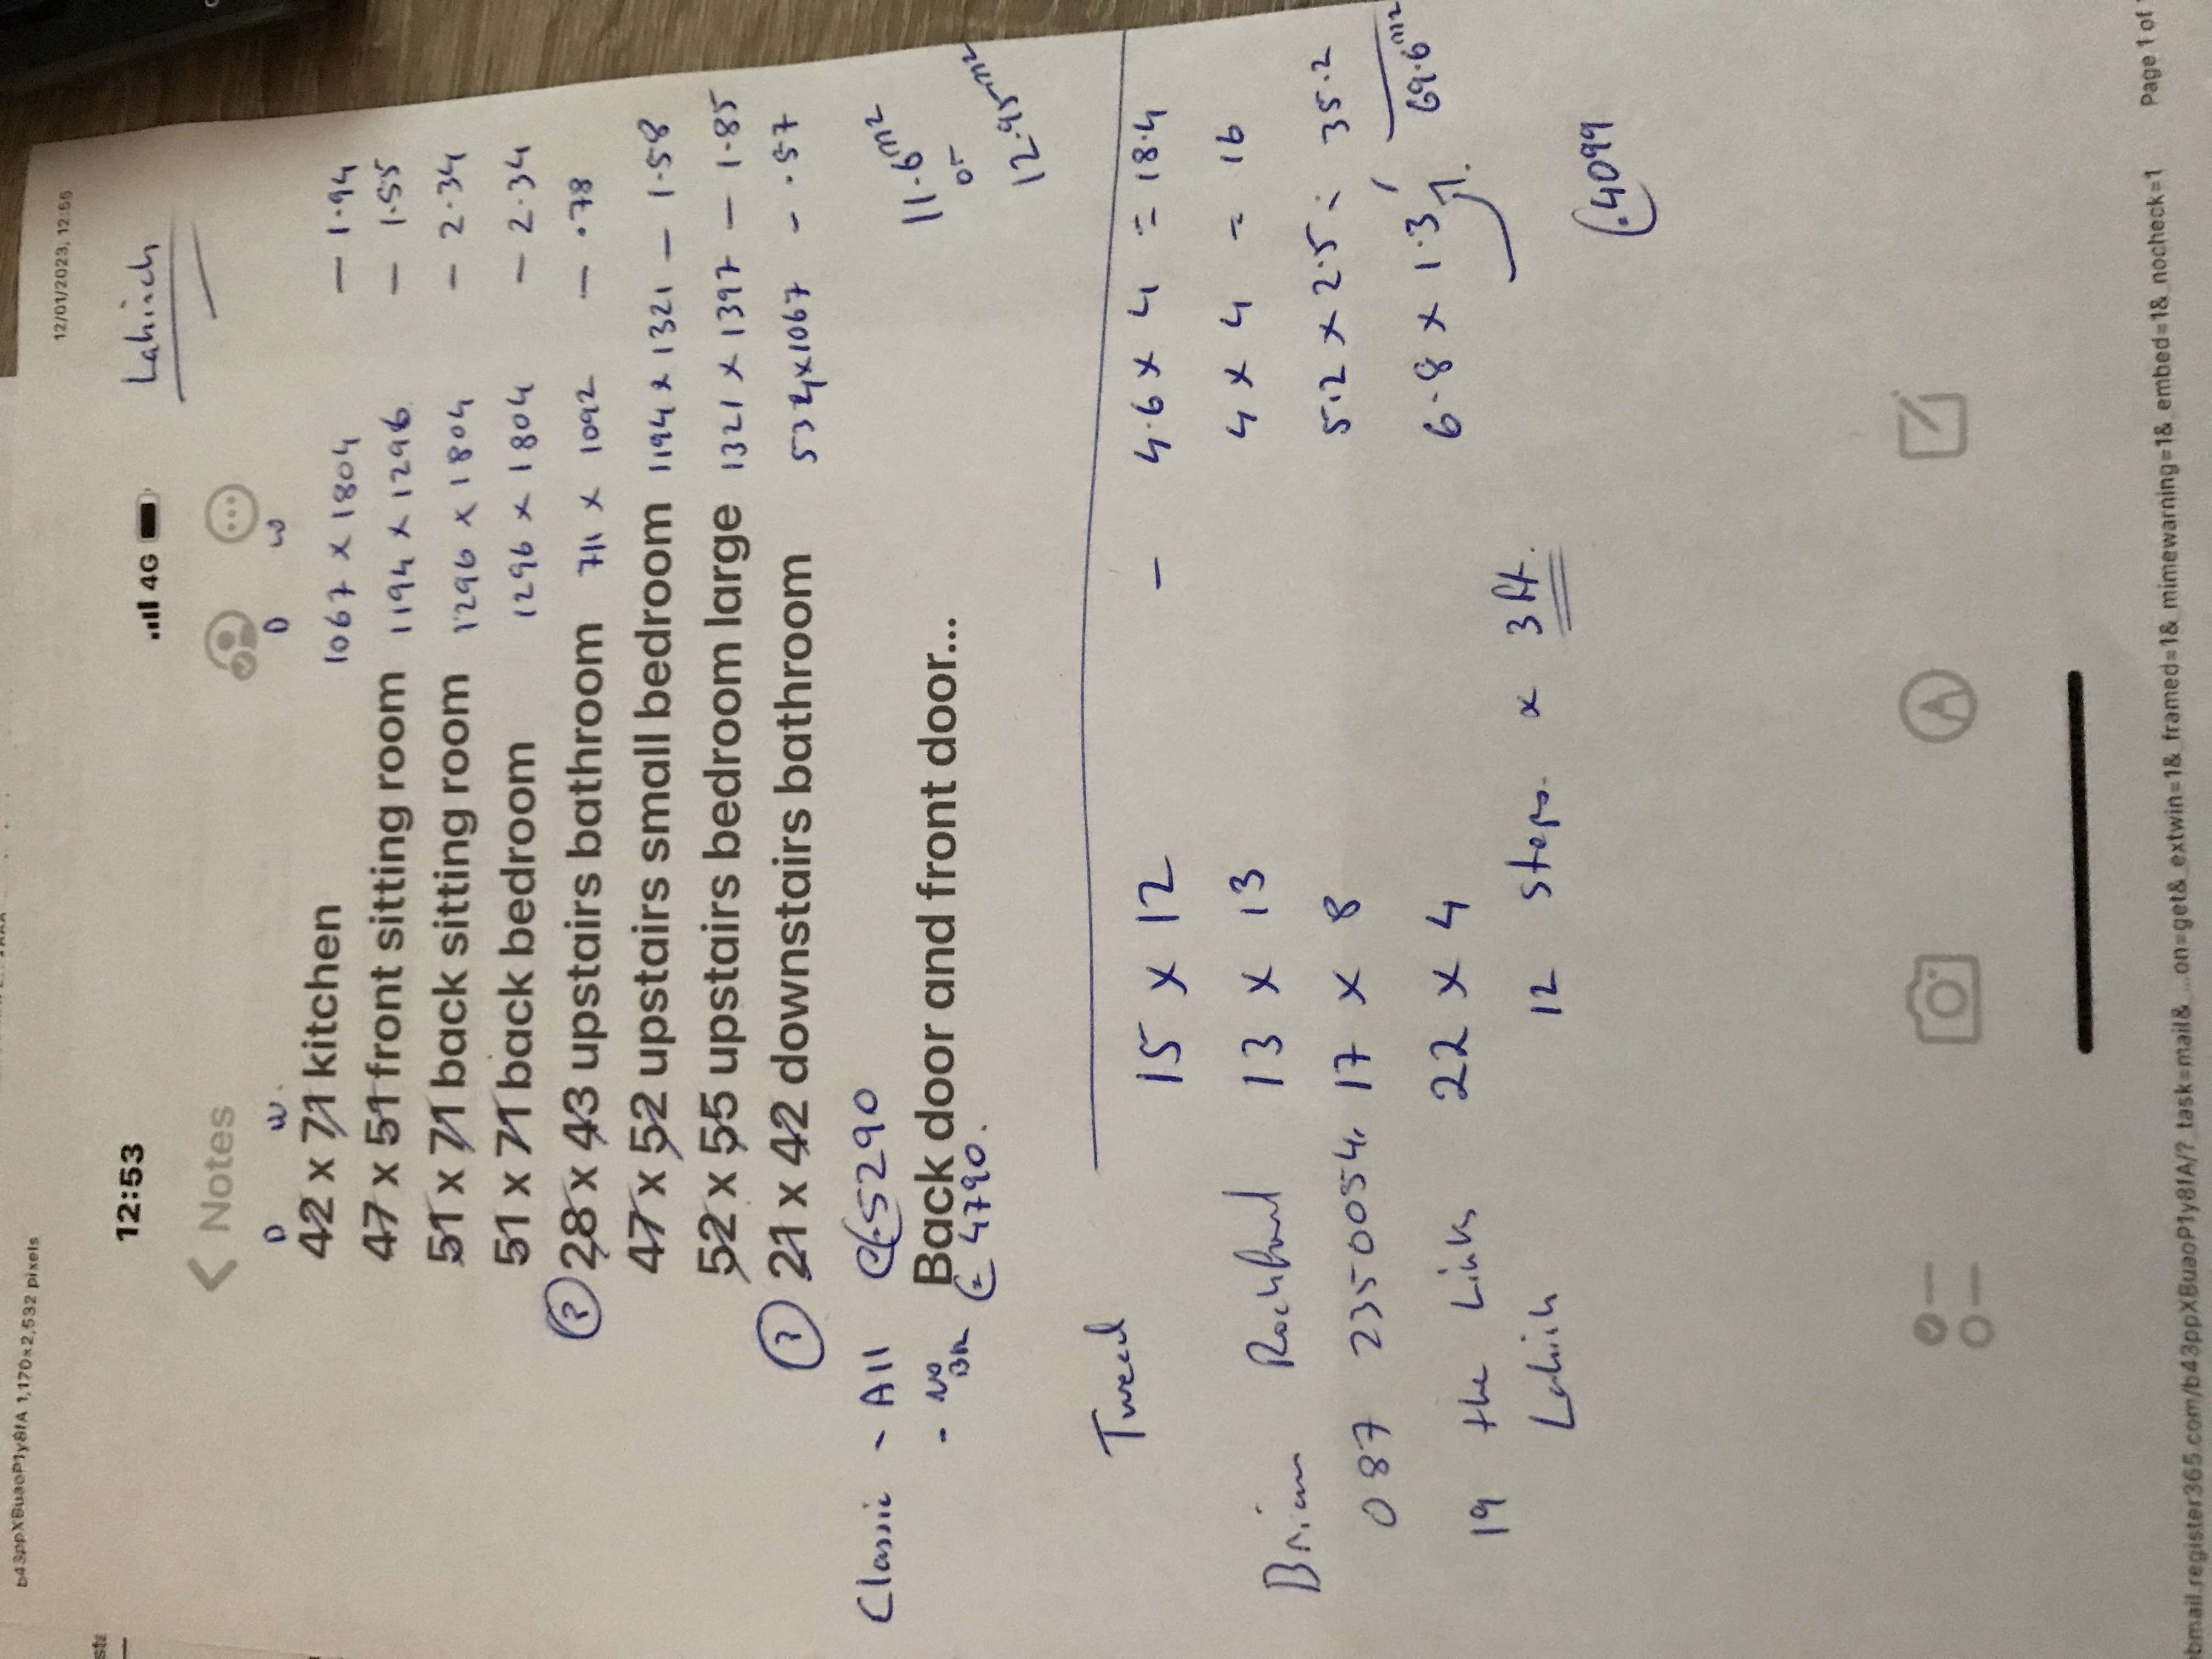 b43ppXBuaoP1y8fA 1,170×2,532 pixels 12/01/2023, 12:55
12:53 4G Lahinch
Notes
D W. D W
42 x 71 kitchen 1067 x 1804 — 1.94
47 x 51 front sitting room 1194 x 1296 — 1.55
51 x 71 back sitting room 1296 x 1804 — 2.34
51 x 71 back bedroom 1296 x 1804 — 2.34
(?) 28 x 43 upstairs bathroom 711 x 1092 — .78
47 x 52 upstairs small bedroom 1194 x 1321 — 1.58
52 x 55 upstairs bedroom large 1321 x 1397 — 1.85
(?) 21 x 42 downstairs bathroom 534x1067 — .57
Classic - All €5290 11.6m2
Back door and front door... or
- No €4790. 12.95m2
Tweed
15 x 12 — 4.6 x 4 = 18.4
Brian 13 x 13 4 x 4 = 16
087 2350054. 17 x 8 5.2 x 2.5 = 35.2
19 the Links 22 x 4 6.8 x 1.3 69.6m2
Lahinch 12 steps. x 3ft.
4099
bmail.register365.com/b43ppXBuaoP1y8fA/?_task=mail&_...on=get&_extwin=1&_framed=1&_mimewarning=1&_embed=1&_nocheck=1 Page 1 of